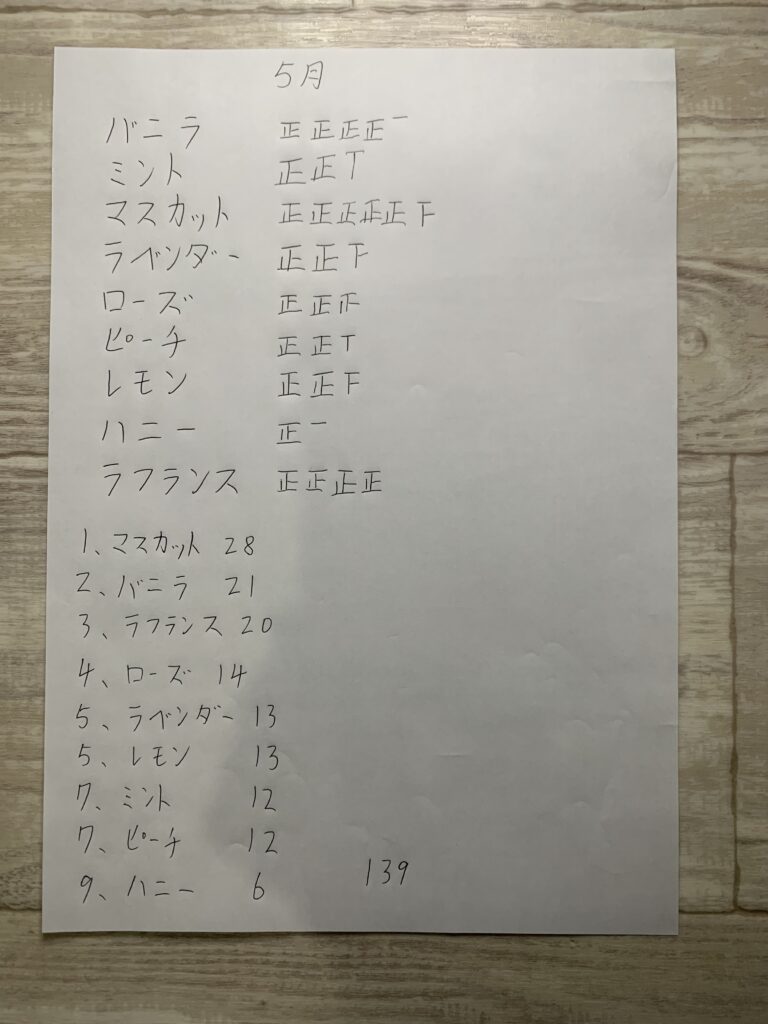 5月
バニラ 正正正正一
ミント 正正T
マスカット 正正正正正下
ラベンダー 正正下
ローズ 正正正
ピーチ 正正T
レモン 正正下
ハニー 正一
ラフランス 正正正正
1、マスカット 28
2、バニラ 21
3、ラフランス 20
4、ローズ 14
5、ラベンダー 13
5、レモン 13
7、ミント 12
7、ピーチ 12
9、ハニー 6
139